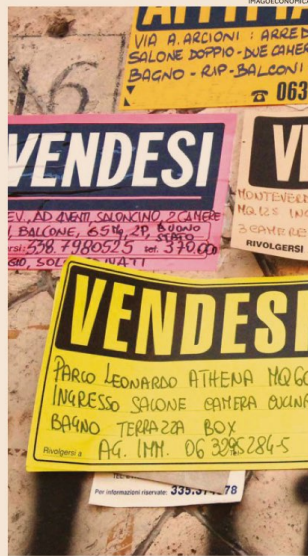 IMAGOECONOMICA
AFFITTASI
VIA A. ARCIONI : ARRED
SALONE DOPPIO - DUE CAMER
BAGNO - RIP - BALCONI
063
16
VENDESI
AD AVENTI, SALONCINO, 2 CAMERE
BALCONE, 65 MQ, 2P, BUONO
STATO
338.7980525 tel. 370.000
SOLO PRIVATI
VE
MONTEVERD
MQ. 125 IN
3 CAMERE
RIVOLGERSI
VENDESI
PARCO LEONARDO ATHENA MQ 60
INGRESSO SALONE CAMERA CUCINA
BAGNO TERRAZZA BOX
Rivolgersi a AG. IMM. 06 3295284-5
Per informazioni riservate: 335.374 78